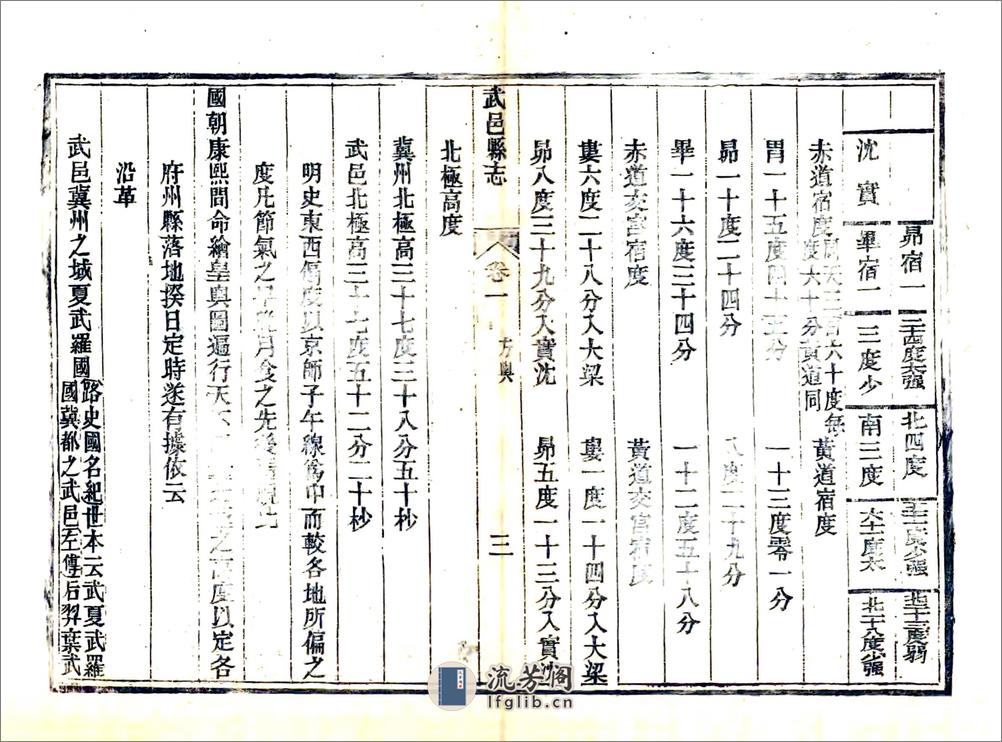 昴宿一 北四度
沈實 畢宿一 三度少 南三度
赤道宿度 周天三百六十度每度六十分黃道同 黃道宿度
胃一十五度四十五分 一十三度零一分
昴一十度二十四分 八度二十九分
畢一十六度三十四分 一十二度五十八分
赤道交宮宿度 黃道交宮宿度
婁六度二十八分入大梁 婁一度一十四分入大梁
昴八度三十九分入實沈 昴五度一十三分入實沈
武邑縣志 卷一 方輿 三
北極高度
冀州北極高三十七度三十八分五十杪
武邑北極高三十七度五十二分二十杪
明史東西偏度以京師子午線為中而較各地所偏之
度凡節氣之 月食之先後
國朝康熙間命繪皇輿圖遍行天 之 度以定各
府州縣落地揆日定時遂有據依云
沿革
武邑冀州之域夏武羅國路史國名紀世本云武夏武羅
國冀都之武邑左傳后羿棄武
流芳阁
lfglib.cn